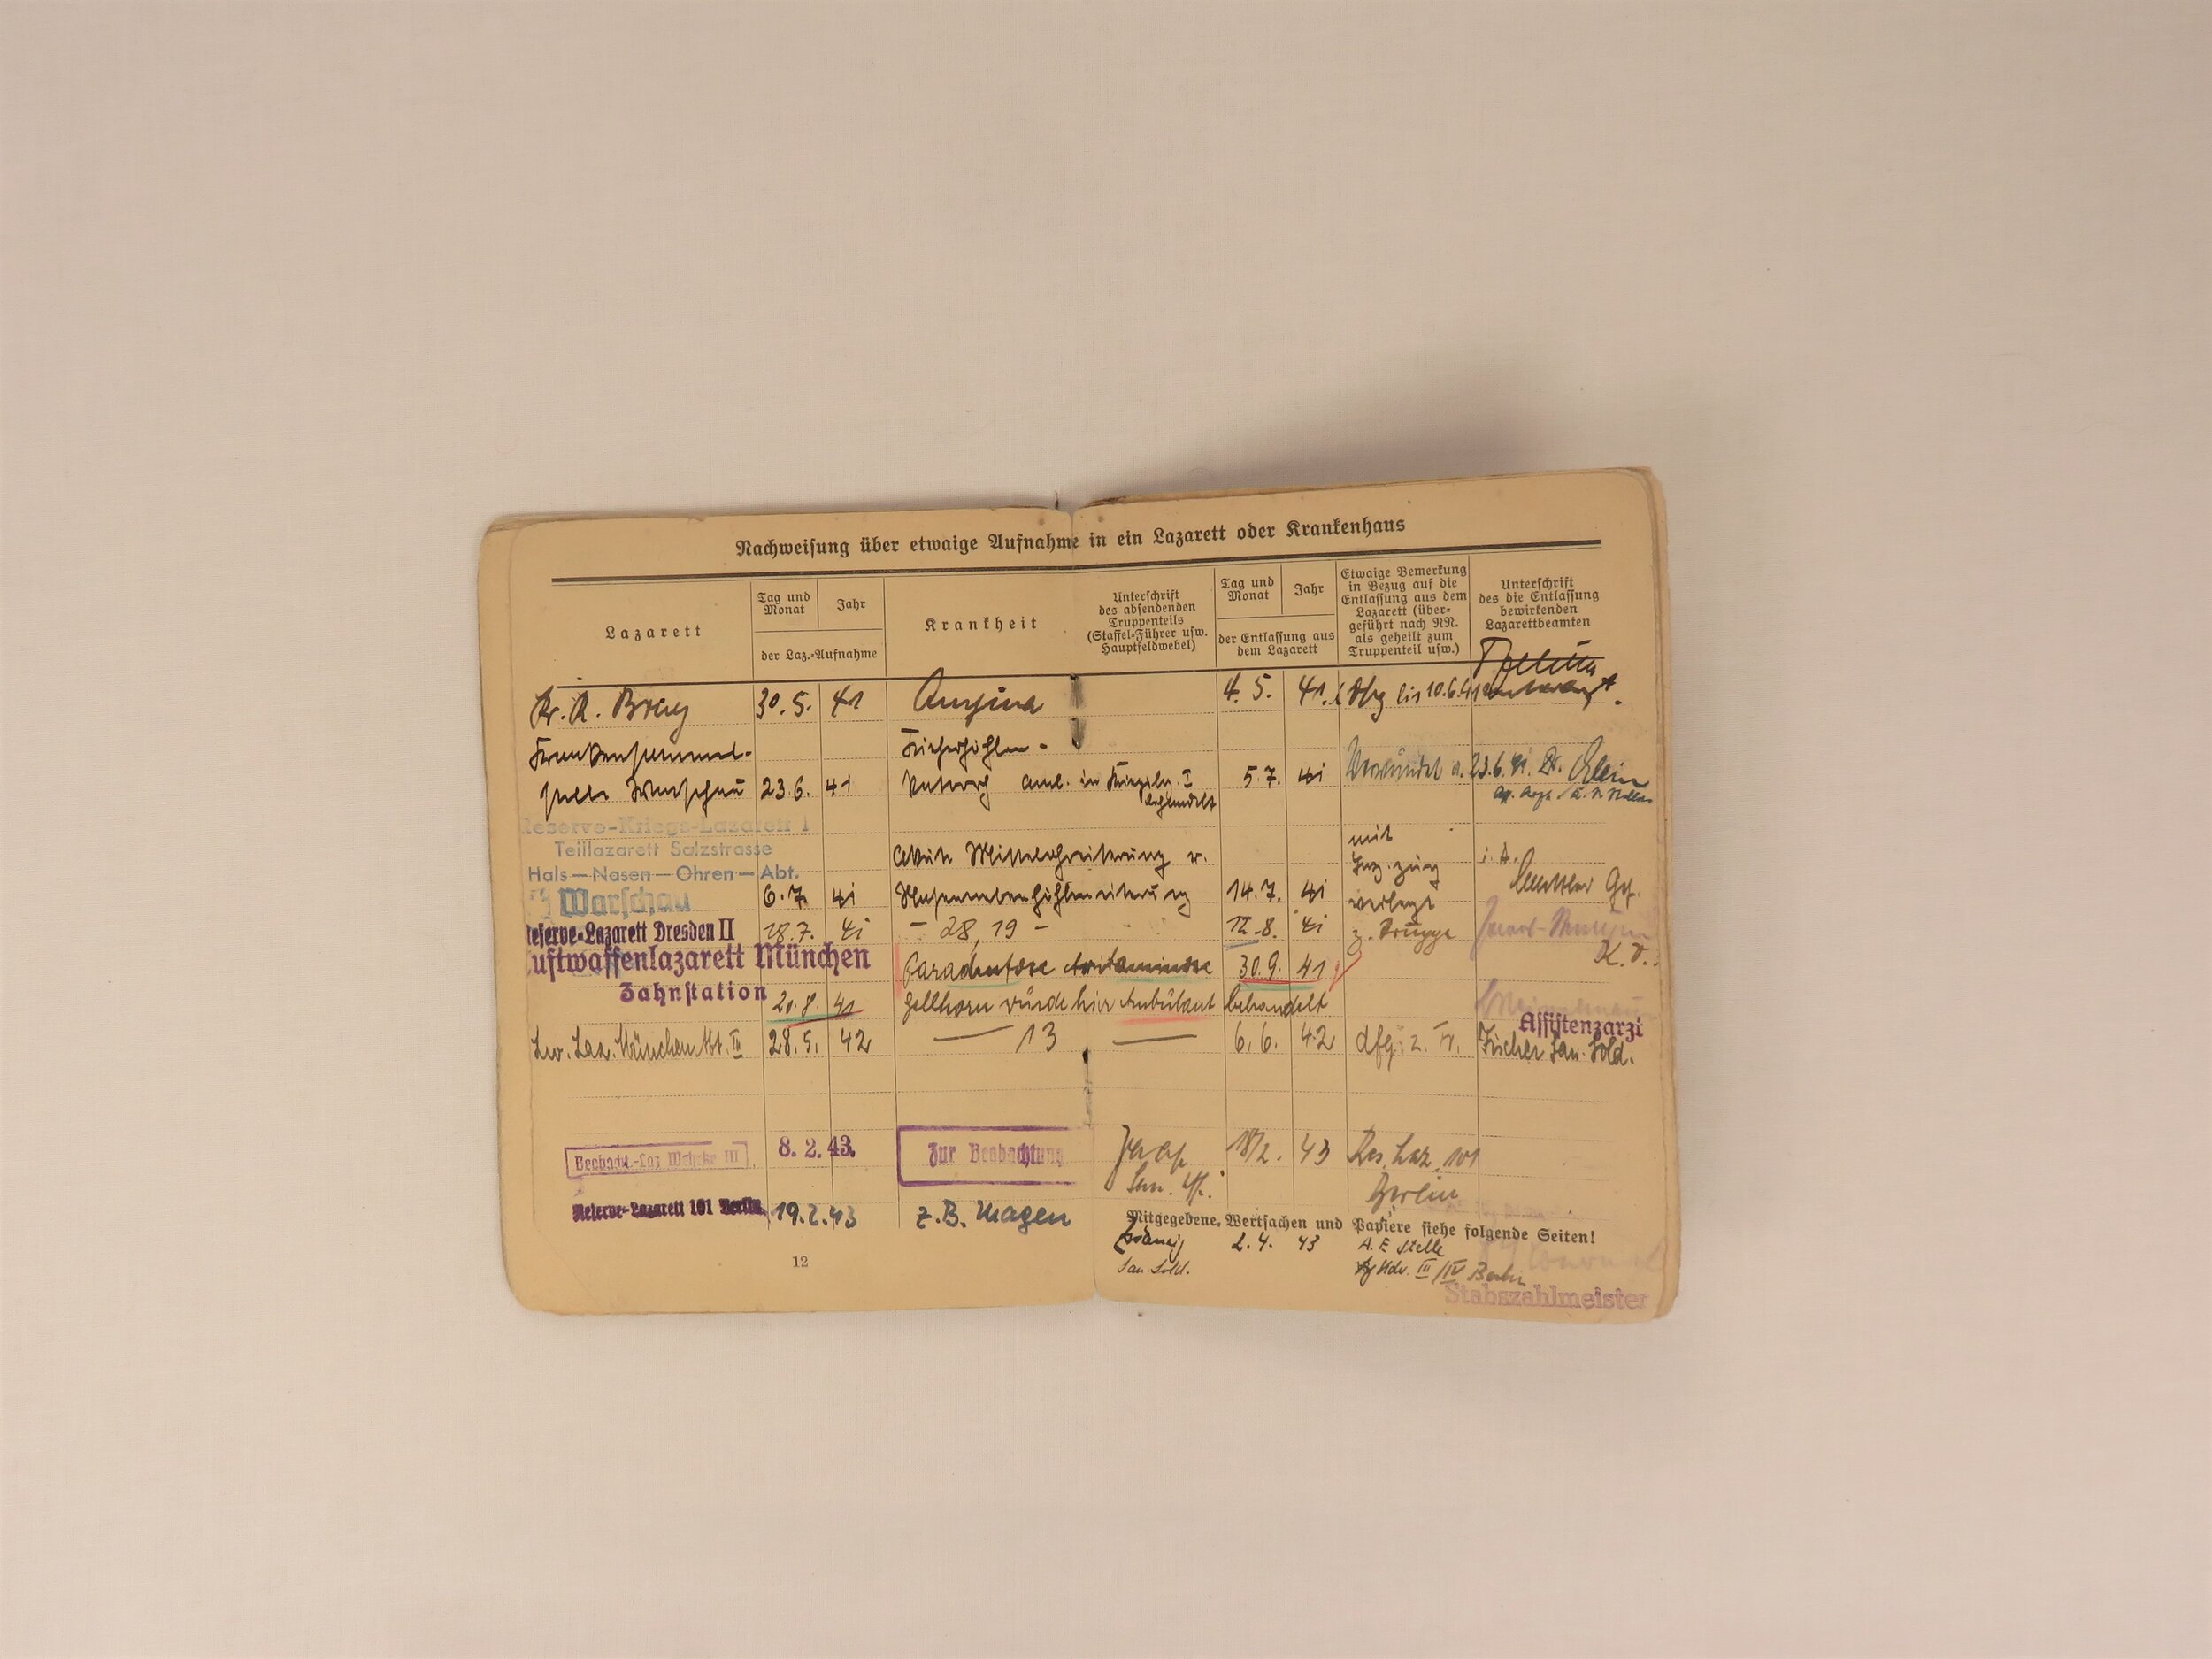 Nachweisung über etwaige Aufnahme in ein Lazarett oder Krankenhaus
Lazarett
Tag und Monat
Jahr
der Laz.-Aufnahme
Krankheit
Unterschrift
des absendenden
Truppenteils
(Staffel-Führer usw.
Hauptfeldwebel)
Tag und Monat
Jahr
der Entlassung aus
dem Lazarett
Etwaige Bemerkung
in Bezug auf die
Entlassung aus dem
Lazarett (über-
geführt nach NN.
als geheilt zum
Truppenteil usw.)
Unterschrift
des die Entlassung
bewirkenden
Lazarettbeamten
Kr. R. 30.5. 41 Angina 4.5. 41. bis 10.6.41
Krankensammel-
stelle Warschau 23.6. 41 Katarrh amb. in 5.7. 41 a. 23.6.41. Dr.
behandelt
Reserve-Kriegs-Lazarett I
Teillazarett Salzstrasse
Hals-Nasen-Ohren-Abt.
Warschau
akute Mittelohreiterung u. mit i. A.
6.7. 41 Nasennebenhöhleneiterung 14.7. 41 verlegt
Reserve-Lazarett Dresden II 18.7. 41 - 28, 19 - 12.8. 41 z. Truppe
Luftwaffenlazarett München
Zahnstation
Paradentose Avitaminose 30.9. 41
20.8. 41 wurde hier ambulant behandelt
Assistenzarzt
Lw. Laz. München Abt. 28.5. 42 — 13 — 6.6. 42 dfg. z. Tr. Fischer San. Sold.
Beobacht.-Laz Wehrkr III 8. 2. 43. Zur Beobachtung 18/2. 43 Res. Laz. 101
Berlin
Reserve-Lazarett 101 Berlin 19.2.43 z.B. Magen
Mitgegebene Wertsachen und Papiere siehe folgende Seiten!
2.4. 43 A. E. Stelle
San. Sold. III/IV Berlin
Stabszahlmeister
12